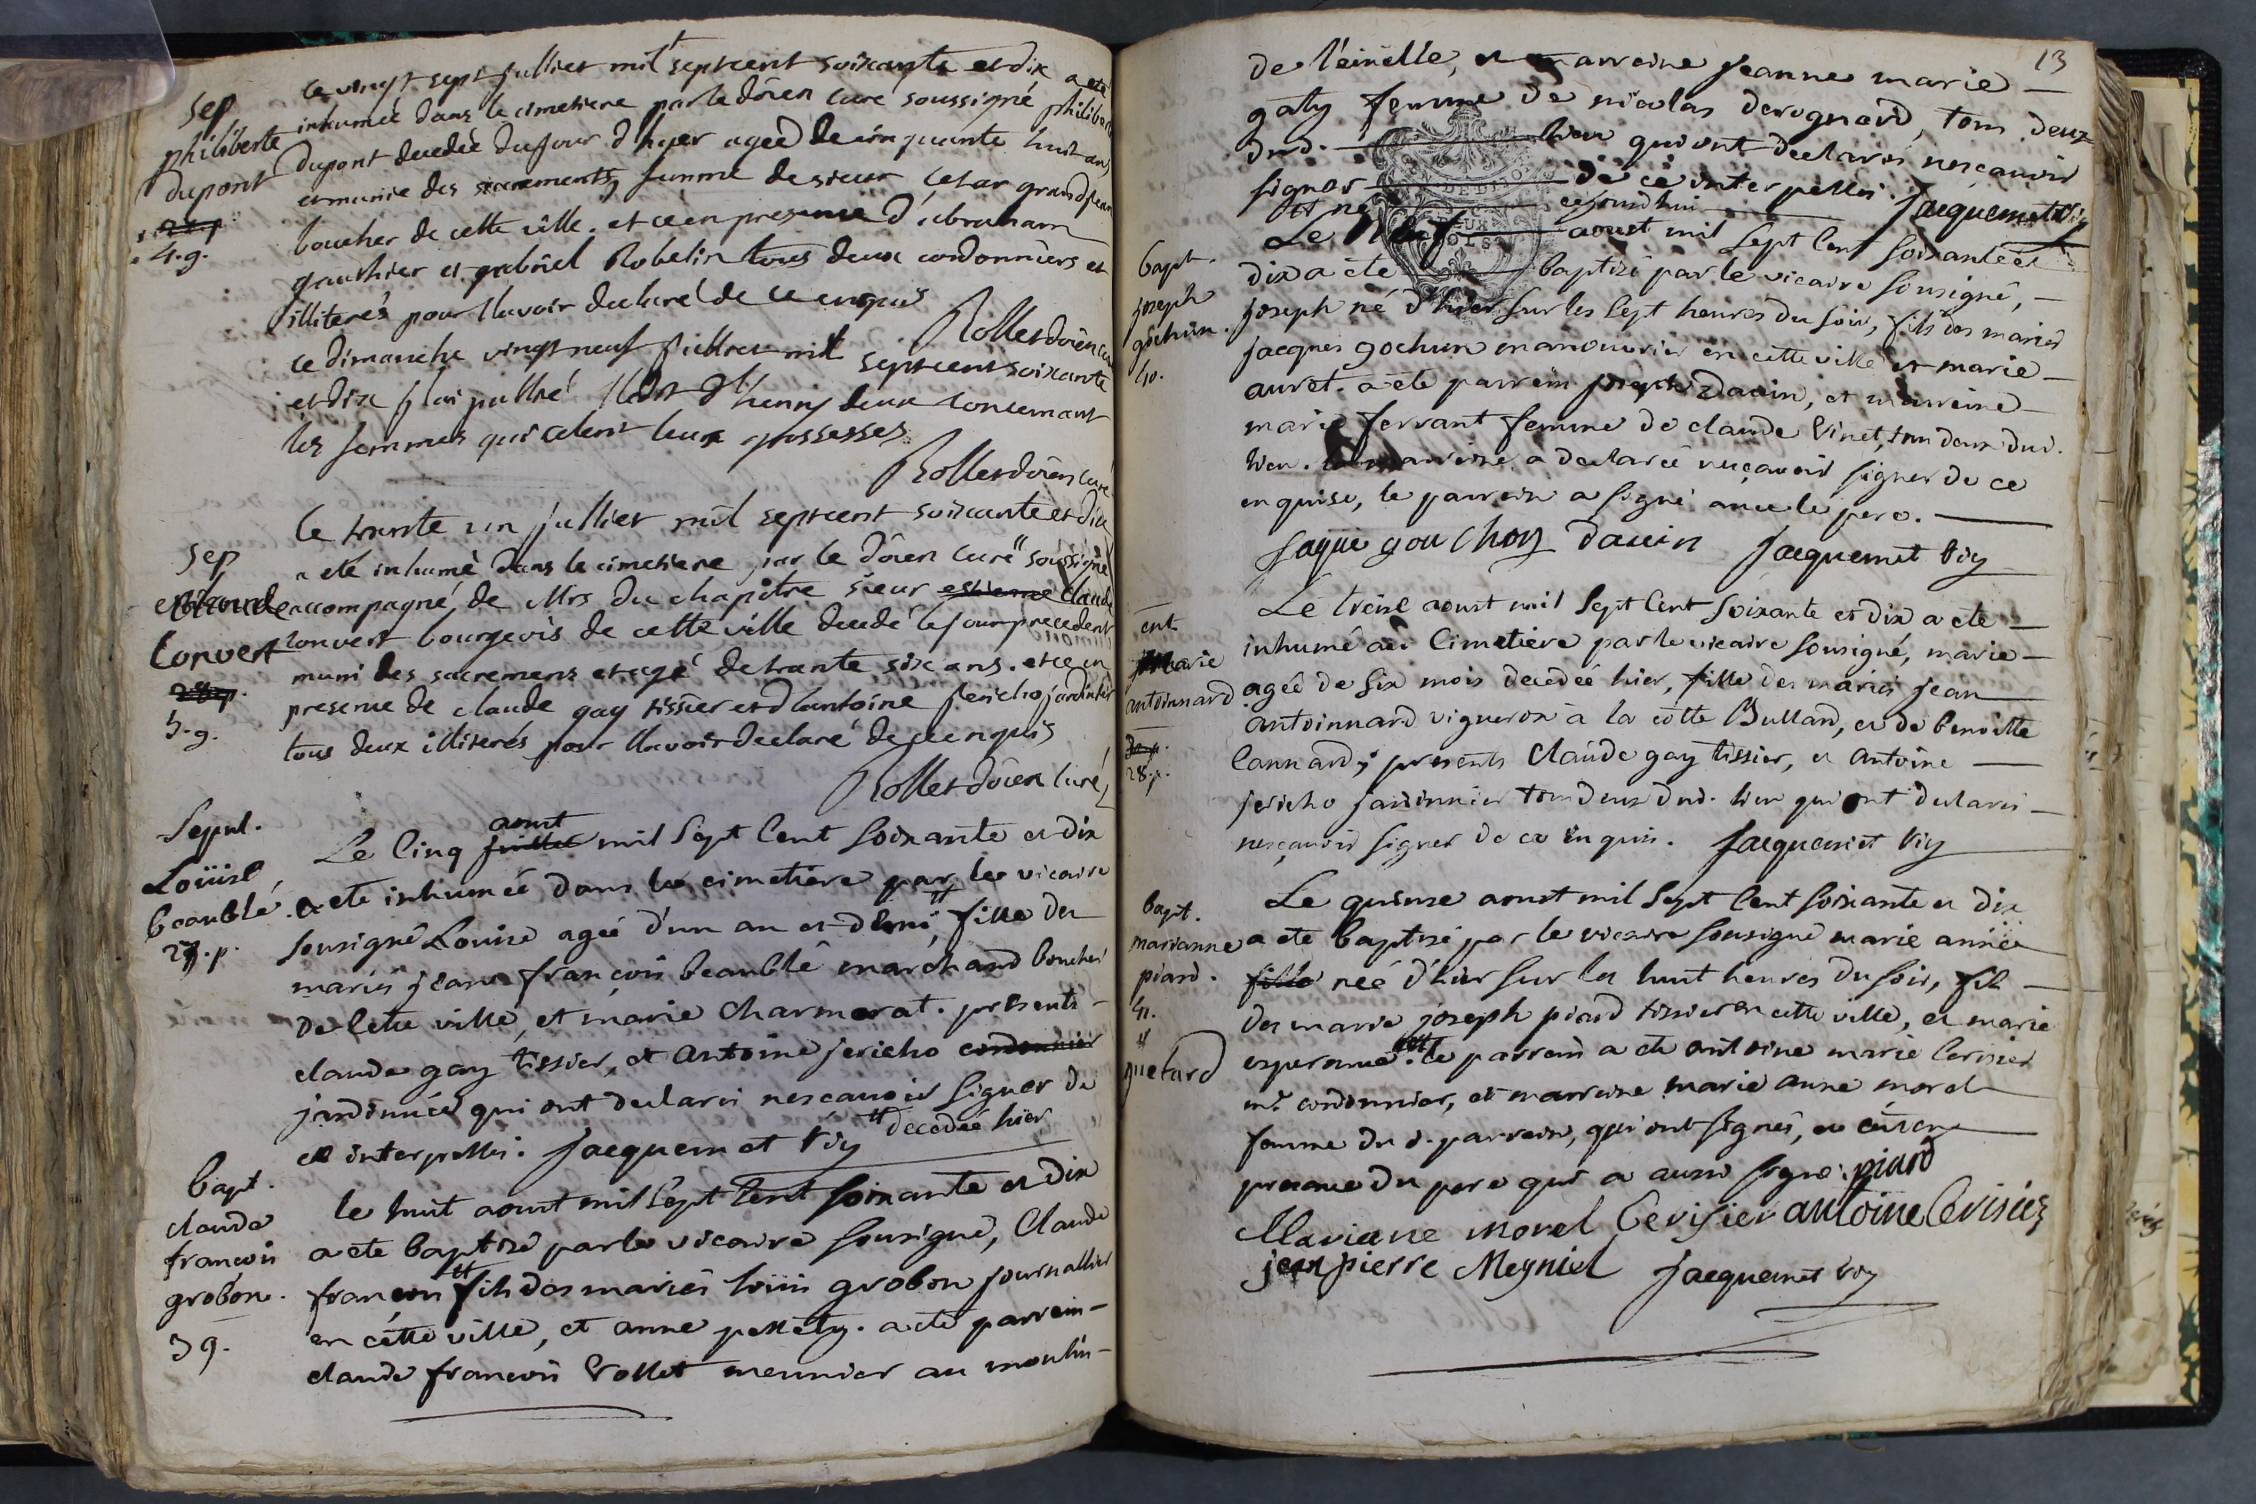 le vingt sept juillier mil septcent soixante et dix a eté
inhumeé dans le cimetiere par le döien curé soussigné philiberte
Sep
philiberte
dupont
4. g.
dupont decedeé du jour d'hyer ageé de cinquante huit ans
et munie des sacrements femme de sieur Cesar grandjean
boucher de cette ville. et ce en presence d'abraham
gauthier et gabriel Robelin tous deux cordonniers et
illiterés pour l'lavoir declaré de ce enquis
Rollet döien curé
ce dimanche vingt neuf juillier mil septcent soixante
et dix j'ai publié l'Edit d'henry deux concernant
les femmes qui celent leurs grossesses
Rollet döien curé
Sep
Claude
Convert
5. g.
le trante un juillier mil septcent soixante et dix
a eté inhumé dans le cimetiere par le döien curé soussigné
accompagné de Mrs du chapitre sieur estienne Claude
convert bourgeois de cette ville decedé le jour precedent
muni des sacremens et agé de trante six ans. et ce en
presence de claude gay tissier et d'antoine jericho jardinier
tous deux illiterés pour l'lavoir declaré de ce enquis
Rollet döien curé
Sepul.
Loüise
beaublé
27. p.
aoust
Le Cinq juillet mil Sept Cent Soixante et dix
a eté inhumeé dans le cimetiere par le vicaire
sousigné Louise ageé d'un an et demi, fille des
mariés jean françois beaublé marchand boucher
de cette ville, et marie charmerat. presents
claude gay tissier, et antoine jericho cordonnier
jardinnier qui ont declarés nescavoir signer de
ce interpellés. Jacquemet vic decedeé hier
bapt.
claude
francois
grobon.
39.
le huit aoust mil Sept Cent soixante et dix
a ete baptisé par le vicaire sousigné, Claude
francois fils des mariés loüis grobon journallier
en cette ville, et anne pettety. a eté parrein
claude francois Vollet meunier au moulin
13
de l'einëlle, et marreine jeanne marie
gaty femme de nicolas derognard, tous deux
dud. lieu qui ont declarés nesçavoir
signer de ce interpellés. Jacquemet vic
et né cejourd'hui
bapt.
joseph
gochun.
40.
Le neuf aoust mil Sept Cent soixante et
dix a éte baptisé par le vicaire sousigné,
joseph né d'hier sur les sept heures du soir, fils des mariés
jacques gochun manouvrier en cette ville et marie
auret. a éte parrein joseph Dauin, et marreine
marie fervant femme de claude Vinet, tous deux dud.
lieu. la marreine a declareé nesçavoir signer de ce
enquise, le parrein a signé avec le pere.
Jaque gouchon Dauin Jacquemet vic
ent.
marie
antoinnard
28. p.
Le treise aoust mil Sept Cent Soixante et dix a ete
inhumé au Cimetiere par le vicaire sousigné, marie
ageé de six mois decedeé hier, fille des mariés jean
antoinnard vigneron à la côtte Bullard, et de benoitte
Cannard, presents Claude gay tissier, et antoine
jericho jardinnier tous deux dud. lieu qui ont declarés
nesçavoir signer de ce enquis. Jacquemet vic
bapt.
marianne
piard.
41.
guetard
Le quinse aoust mil Sept Cent soixante et dix
a ete baptisé par le vicaire sousigné marie anne
fille neé d'hier sur les huit heures du soir, fil
des marie joseph piard tissier en cette ville, et marie
esperance. le parrein a ete antoine marie Cerisier
me. cordonnier, et marreine marie anne morel
femme du d. parrein, qui ont signés,
presence du pere qui a aussi signé. piard
Mariane morel Cerisier antoine Cerisiez
jean pierre Meyniel Jacquemet vic